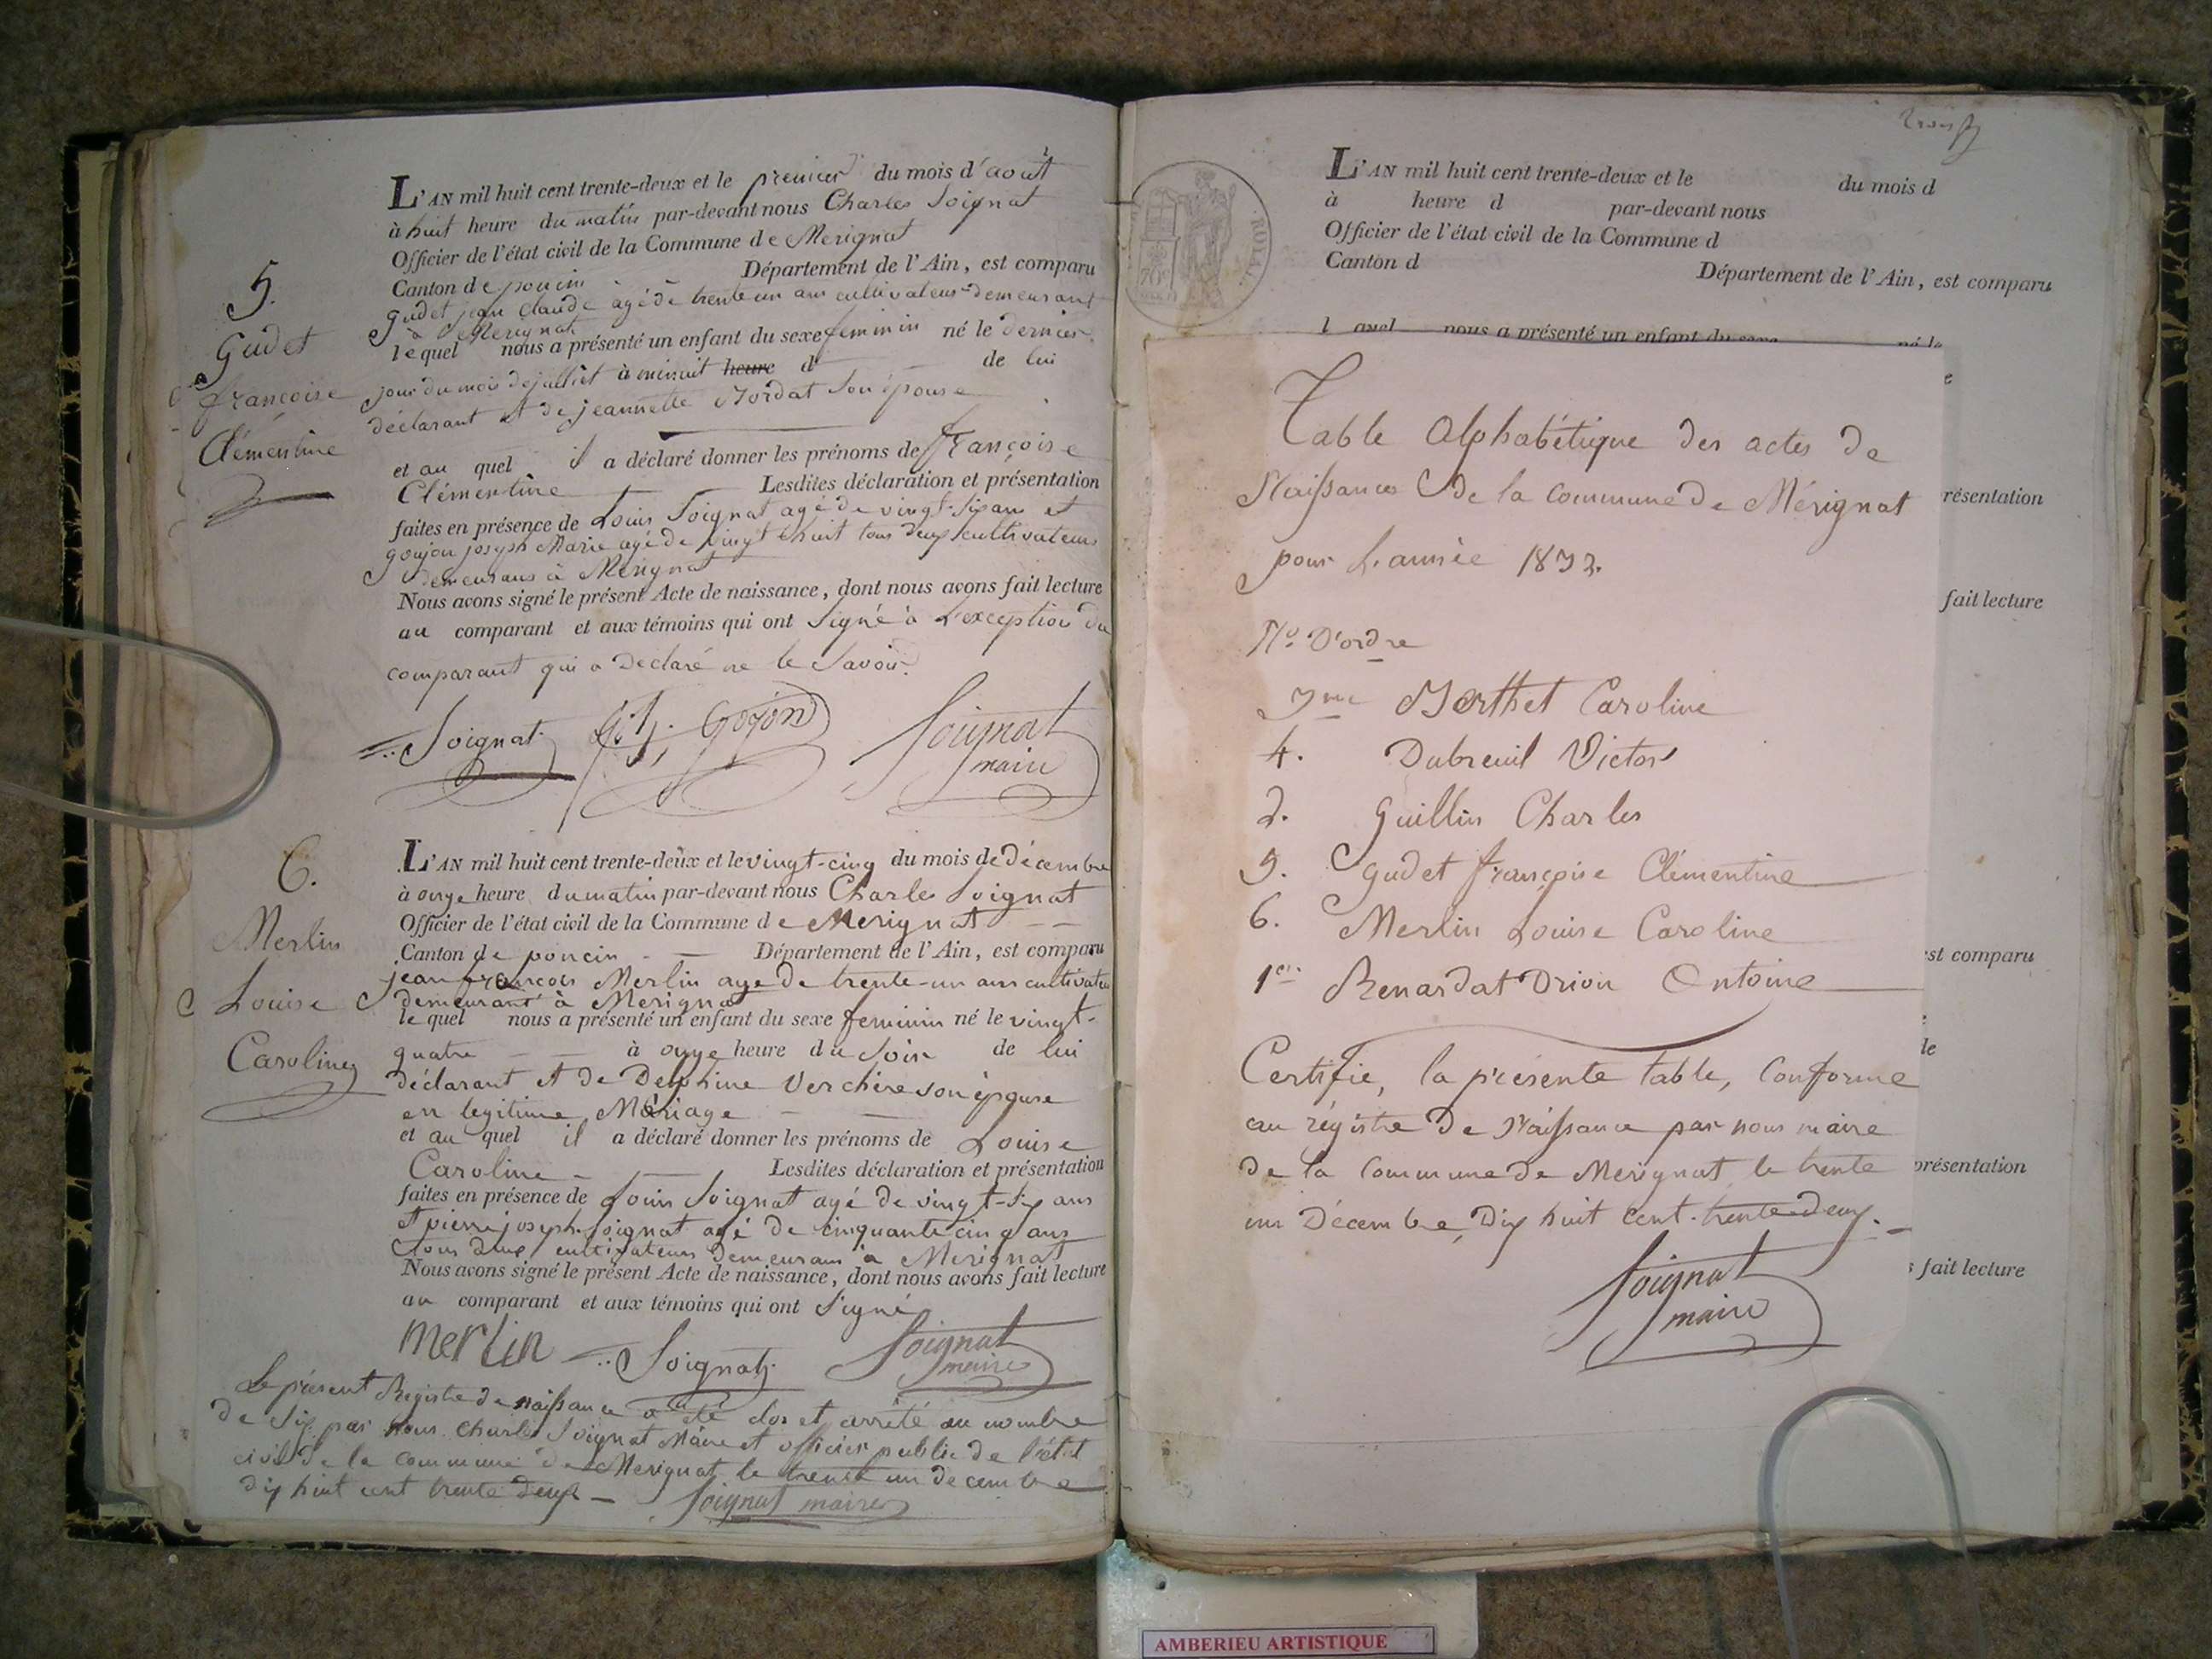 5.
Gudet
françoise
Clémentine
L'AN mil huit cent trente-deux et le premier du mois d'août
à huit heure du matin par-devant nous Charles Soignat
Officier de l'état civil de la Commune de Merignat
Canton de poncin Département de l'Ain, est comparu
Gudet jean Claude âgé de trente un ans cultivateur demeurant
à Merignat
lequel nous a présenté un enfant du sexe feminin né le dernier
jour du mois de juilliet à minuit heure d de lui
déclarant et de jeannette son épouse
et au quel il a déclaré donner les prénoms de françoise
Clémentine Lesdites déclaration et présentation
faites en présence de Louis Soignat agé de vingt-six ans et
goujon joseph Marie agé de vingt huit tous deux cultivateurs
demeurans à Merignat
Nous avons signé le présent Acte de naissance, dont nous avons fait lecture
au comparant et aux témoins qui ont Signé à L'exception du
comparant qui a Déclaré ne le Savoir.
Soignat Gojon Soignat
maire
6.
Merlin
Louise
Caroline
L'AN mil huit cent trente-deux et le vingt-cinq du mois de décembre
à onze heure du matin par-devant nous Charles Soignat
Officier de l'état civil de la Commune de Merignat
Canton de poncin Département de l'Ain, est comparu
jean françois Merlin age de trente-un ans cultivateur
demeurant à Merignat
lequel nous a présenté un enfant du sexe feminin né le vingt-
quatre à onze heure du Soir de lui
déclarant et de Delphine Verchère son épouse
en legitime Mariage
et au quel il a déclaré donner les prénoms de Louise
Caroline Lesdites déclaration et présentation
faites en présence de Louis Soignat agé de vingt-six ans
et pierre joseph Soignat agé de cinquante cinq ans
tous deux cultivateurs demeurans à Merignat
Nous avons signé le présent Acte de naissance, dont nous avons fait lecture
au comparant et aux témoins qui ont Signé
merlin Soignat Soignat
maire
Le présent Registre de naissance a été clos et arrêté au nombre
de Six par nous Charles Soignat Maire et officier public de l'état
civil de la commune de Merignat le trente un decembre
dix huit cent trente deux — Soignat maire
L'AN mil huit cent trente-deux et le du mois d
à heure d par-devant nous
Officier de l'état civil de la Commune d
Canton d Département de l'Ain, est comparu
l quel nous a présenté un enfant du sexe né le
Table Alphabétique des actes de
Naissances de la Commune de Mérignat
pour L'année 1832.
No. D'ordre
3me Berthet Caroline
4. Dubreuil Victor
2. Guillin Charles
5. Gudet françoise Clémentine
6. Merlin Louise Caroline
1er Renardat Drion Antoine
Certifie, la présente table, Conforme
au régistre de Naissance par nous maire
de la Commune de Merignat le trente
un Décembre, Dix huit Cent trente deux.
Soignat
maire
résentation
fait lecture
est comparu
le
présentation
s fait lecture
AMBERIEU ARTISTIQUE